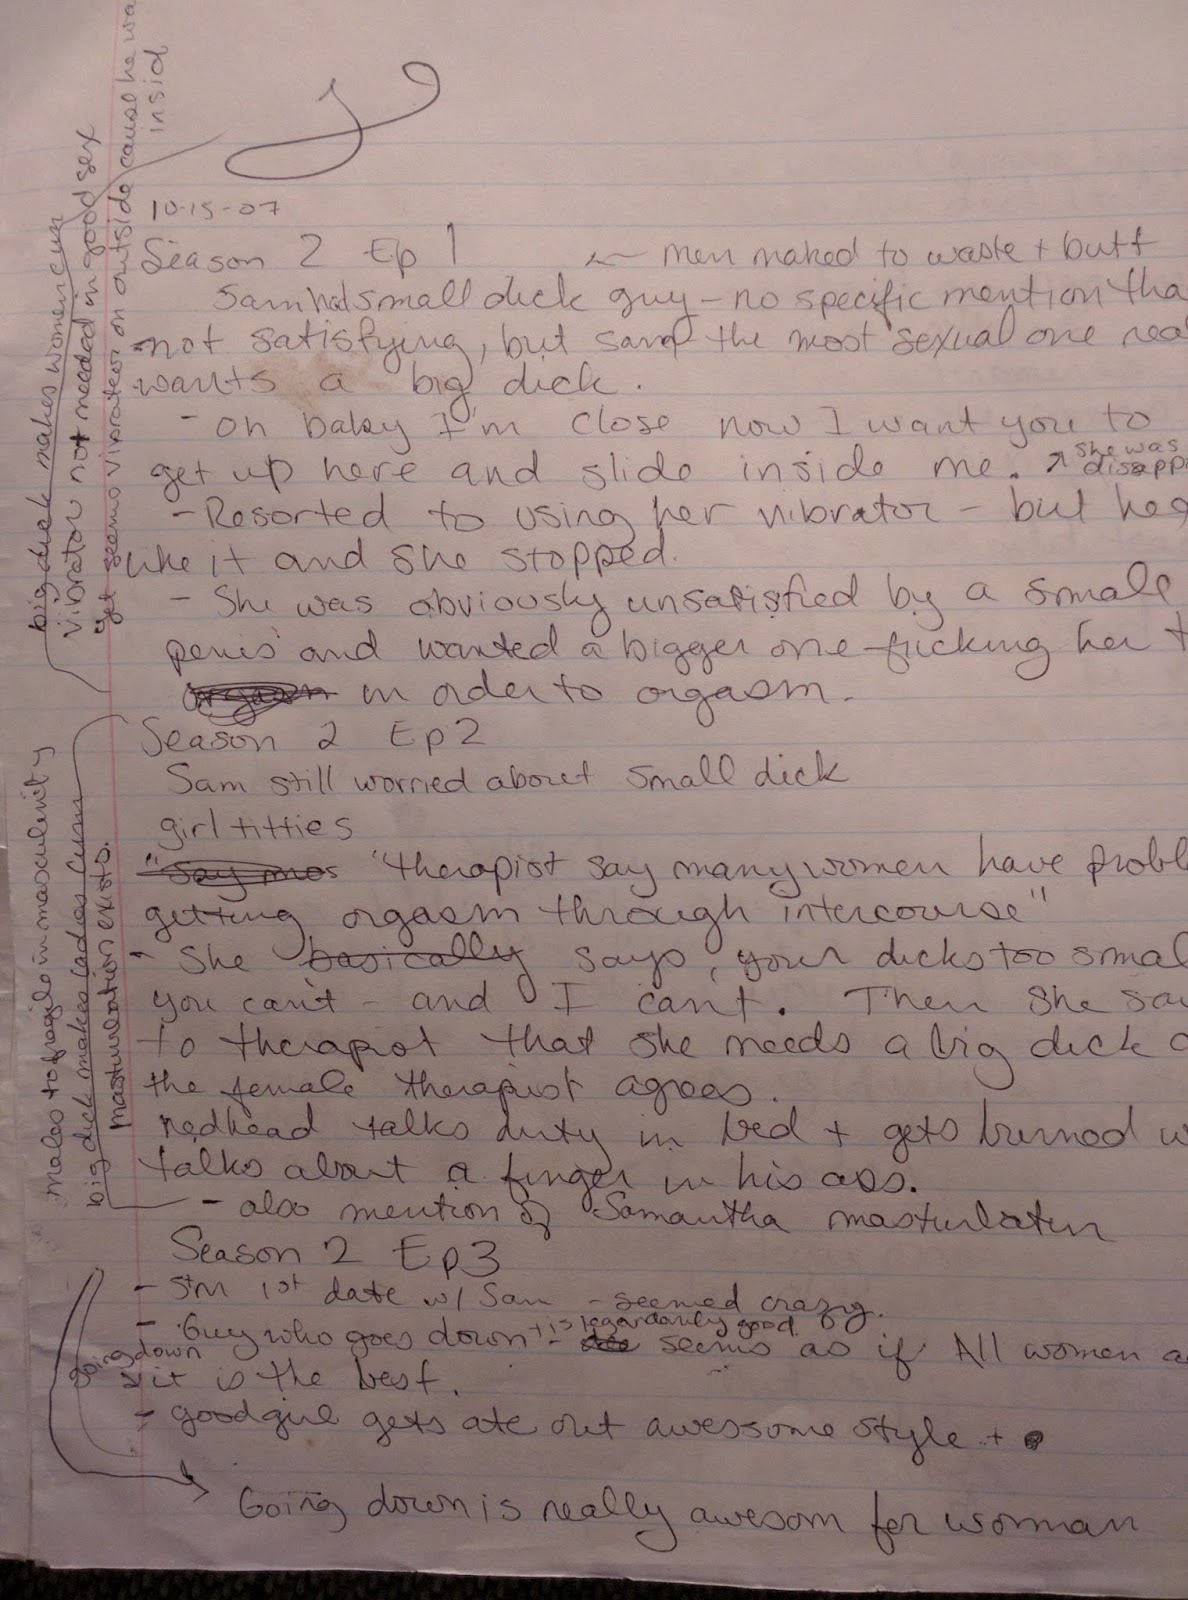 10-15-07
Season 2 Ep 1 ← men naked to waste + butt
Sam had small dick guy – no specific mention tha
not satisfying, but sam the most sexual one rea
wants a big dick.
- oh baby I'm close now I want you to
get up here and slide inside me. ↗ she was
disapp
- Resorted to using her vibrator – but he
like it and she stopped.
- She was obviously unsatisfied by a small
penis and wanted a bigger one fucking her t
orgasm in order to orgasm.
Season 2 Ep 2
Sam still worried about small dick
girl titties
"say mos "therapist say many women have probl
getting orgasm through intercourse"
- She basically says, your dicks too smal
you can't - and I can't. Then she sa
to therapist that she needs a big dick a
the female therapist agrees.
redhead talks dirty in bed + gets burned w
talks about a finger in his ass.
- also mention of Samantha masturbatin
Season 2 Ep 3
- S+M 1st date w/ Sam - seemed crazy.
- Guy who goes down + is legardarily good - seems as if All women a
going down
it is the best.
- good girl gets ate out awesome style +
Going down is really awesom for woman
big dick makes women cum
vibrator not needed in good sex
yet seems vibrator on outside cause he wa
insid
males to fragile in masculinity
big dick makes ladies cum
masturbation exists.